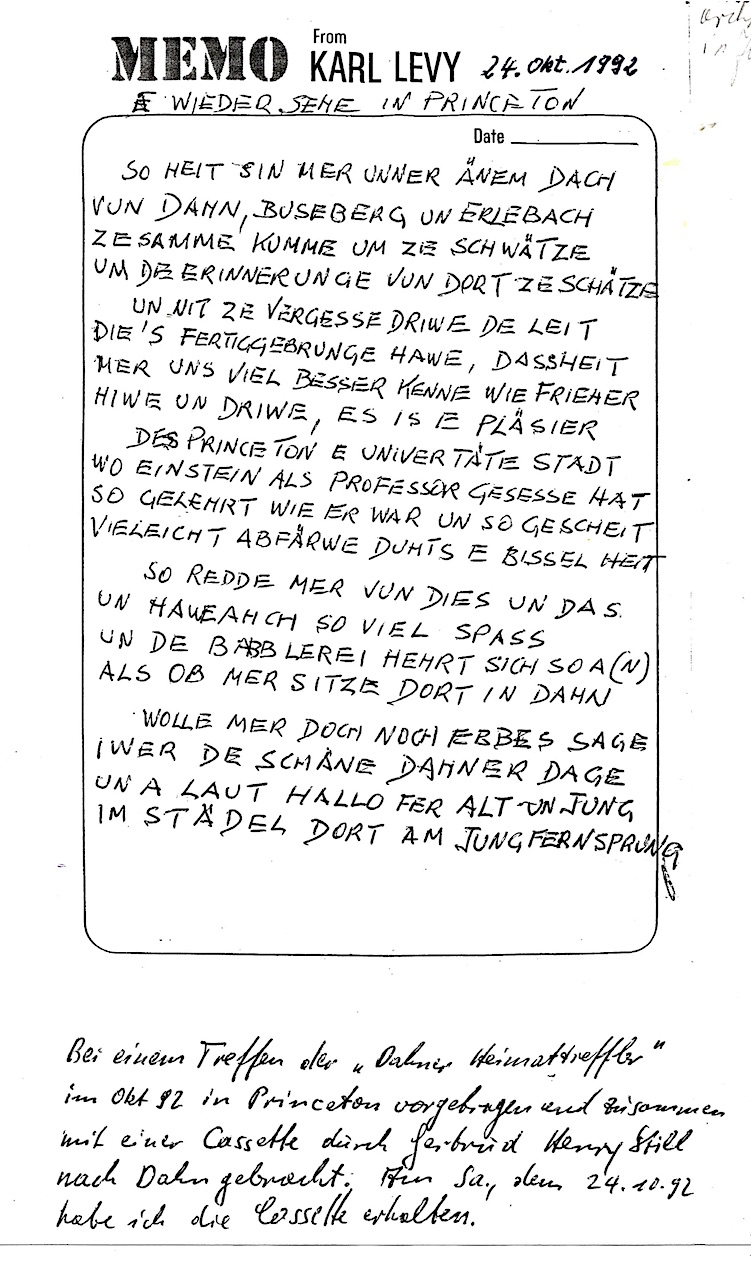 MEMO From
KARL LEVY 24. Okt. 1992
E WIEDERSEHE IN PRINCETON
Date
SO HEIT SIN MER UNNER ÄNEM DACH
VUN DAHN, BUSEBERG UN ERLEBACH
ZESAMME KUMME UM ZE SCHWÄTZE
UM DE ERINNERUNGE VUN DORT ZE SCHÄTZE
UN NIT ZE VERGESSE DRIWE DE LEIT
DIE'S FERTIGGEBRUNGE HAWE, DASS HEIT
MER UNS VIEL BESSER KENNE WIE FRIEHER
HIWE UN DRIWE, ES IS E PLÄSIER
DES PRINCETON E UNIVERTÄTIE STADT
WO EINSTEIN ALS PROFESSOR GESESSE HAT
SO GELEHRT WIE ER WAR UN SO GESCHEIT
VIELEICHT ABFÄRWE DUHTS E BISSEL HEIT
SO REDDE MER VUN DIES UN DAS.
UN HAWE AHCH SO VIEL SPASS
UN DE BABBLEREI HEHRT SICH SO A(N)
ALS OB MER SITZE DORT IN DAHN
WOLLE MER DOCH NOCH EBBES SAGE
IWER DE SCHÄNE DAHNER DAGE
UN A LAUT HALLO FER ALT UN JUNG
IM STÄDEL DORT AM JUNGFERNSPRUNG
Bei einem Treffen der „Dahner Heimattreffler"
im Okt 92 in Princeton vorgetragen und zusammen
mit einer Cassette durch Gertrud Henry Still
nach Dahn gebracht. Am Sa, dem 24.10.92
habe ich die Cassette erhalten.